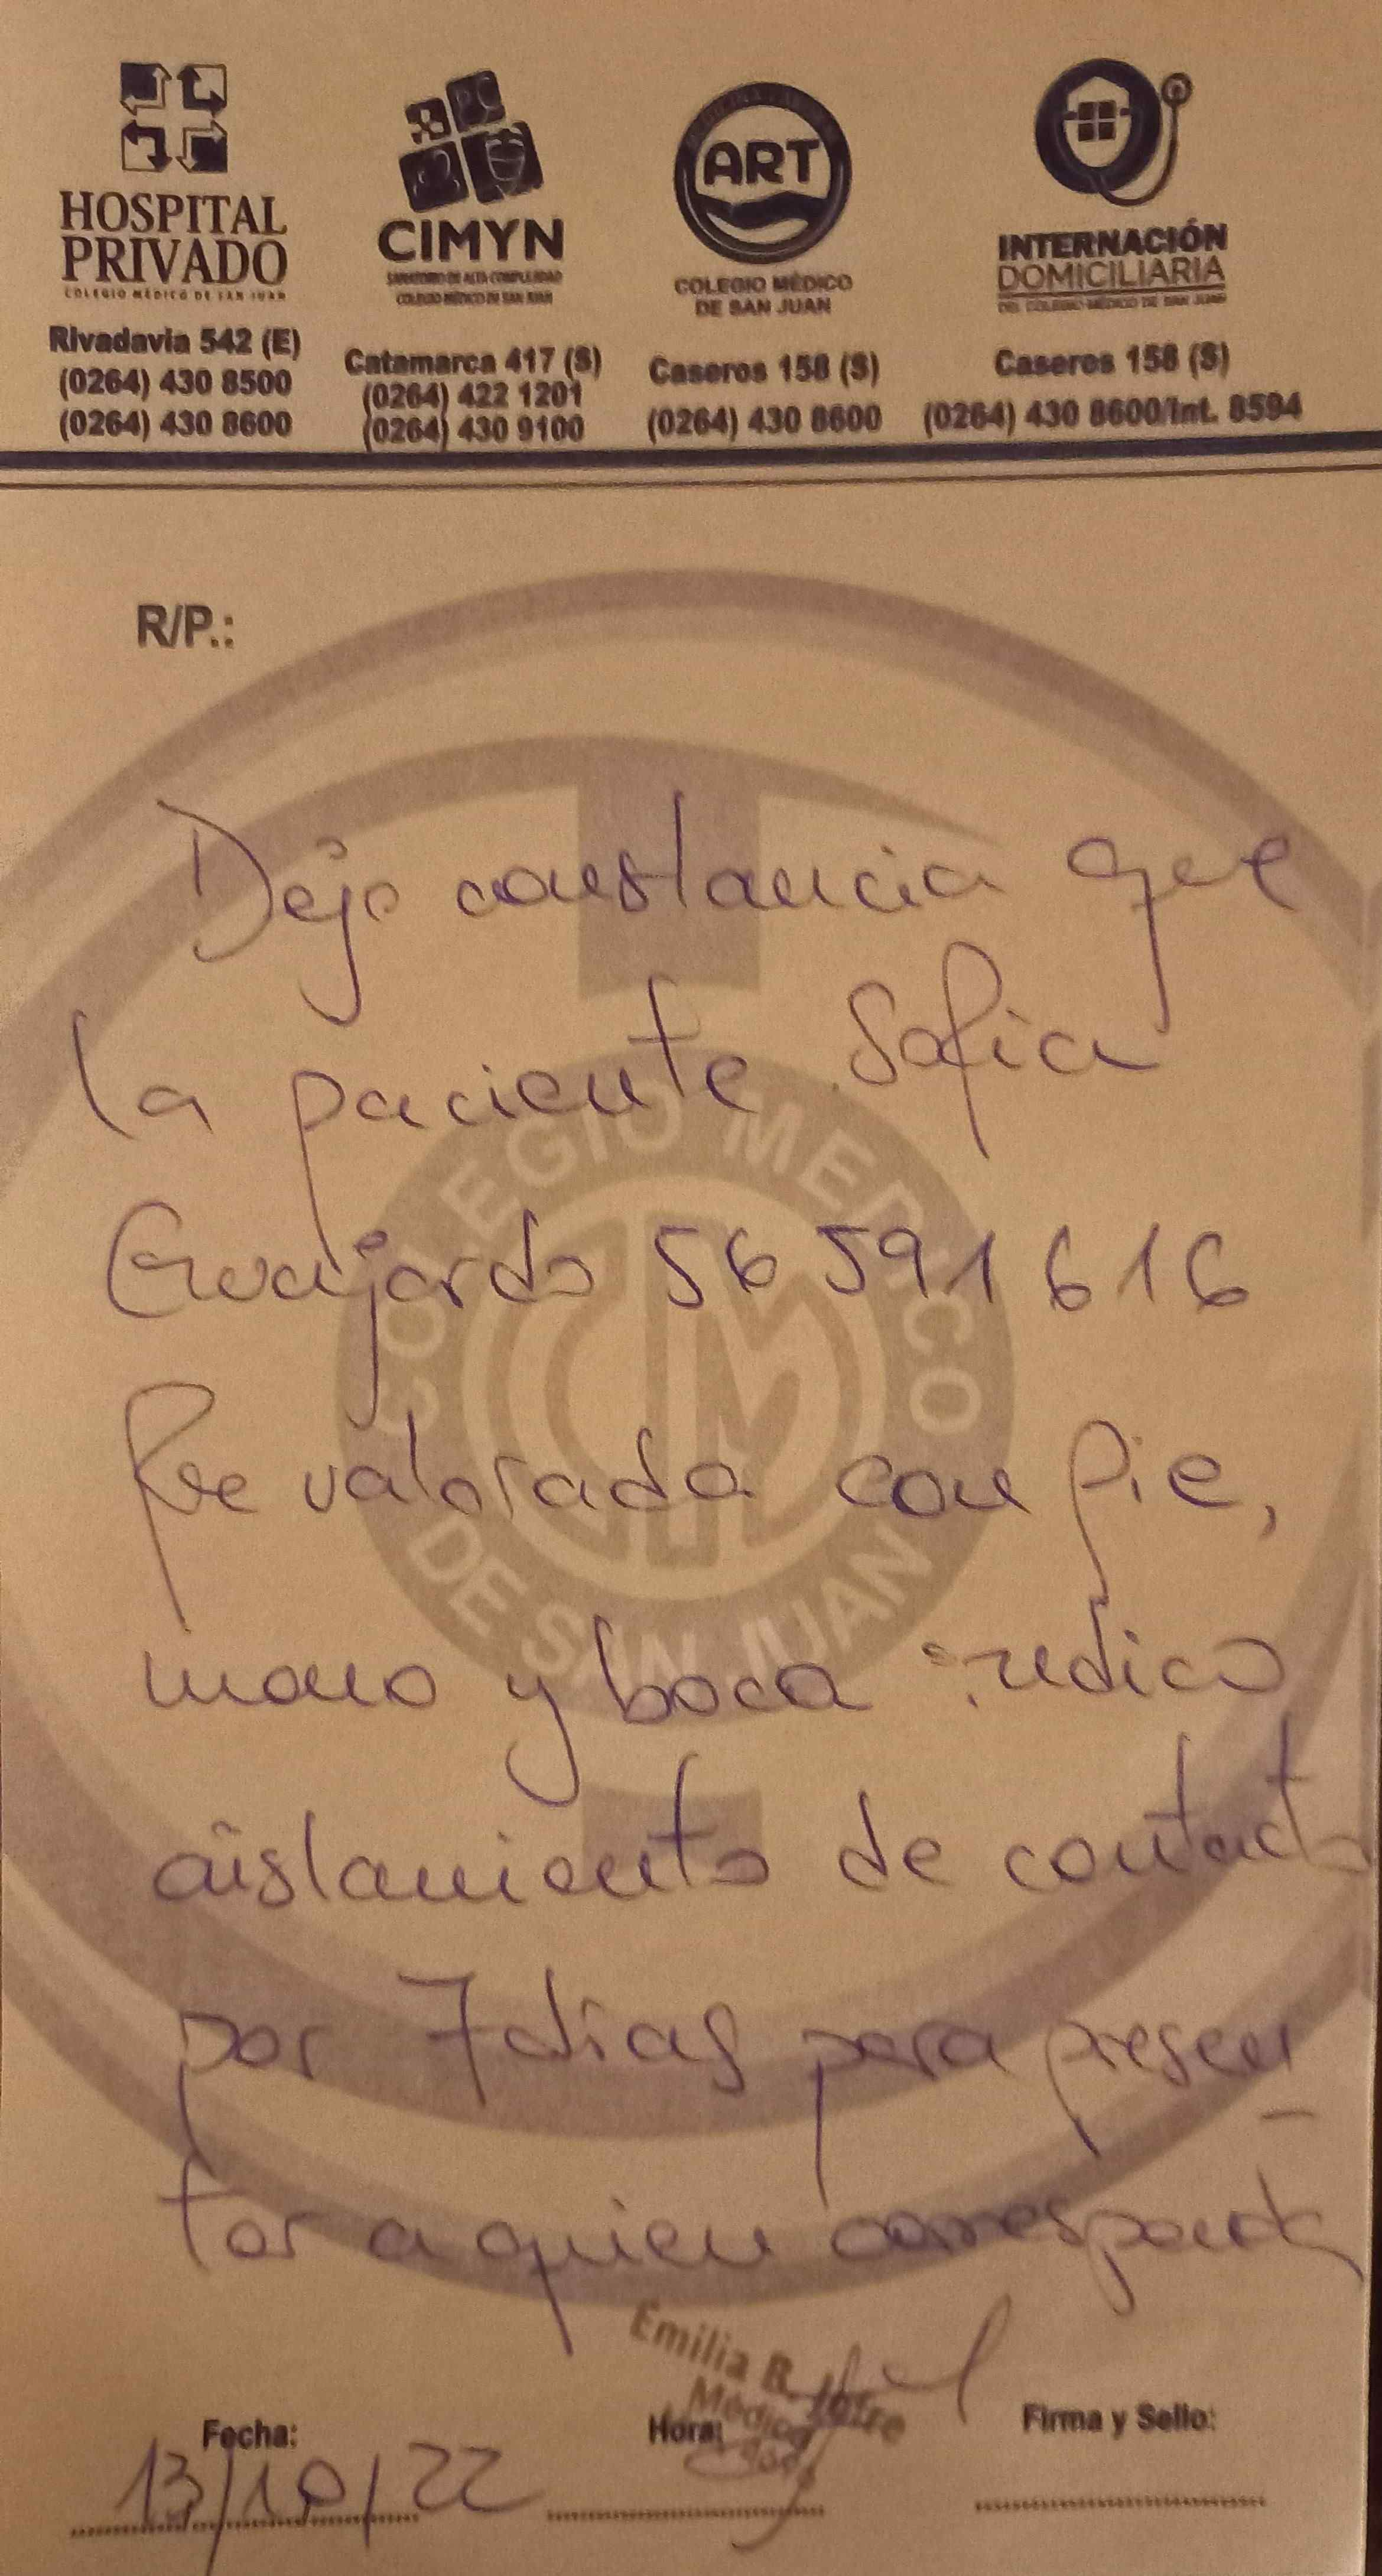 HOSPITAL
PRIVADO
COLEGIO MÉDICO DE SAN JUAN
Rivadavia 542 (E)
(0264) 430 8500
(0264) 430 8600
CIMYN
SANATORIO DE ALTA COMPLEJIDAD
COLEGIO MÉDICO DE SAN JUAN
Catamarca 417 (S)
(0264) 422 1201
(0264) 430 9100
ART
COLEGIO MÉDICO
DE SAN JUAN
Caseros 158 (S)
(0264) 430 8600
INTERNACIÓN
DOMICILIARIA
DEL COLEGIO MÉDICO DE SAN JUAN
Caseros 158 (S)
(0264) 430 8600/Int. 8594
R/P.:
COLEGIO MEDICO
DE SAN JUAN
CM
Dejo constancia que
la paciente Sofia
56 591 616
fue valorada con pie,
mano y boca indico
aislamiento de contacto
por 7 dias para presen
tar a quien corresponda
Emilia R.
Médico
Fecha:
13/10/22
Hora:
Firma y Sello: